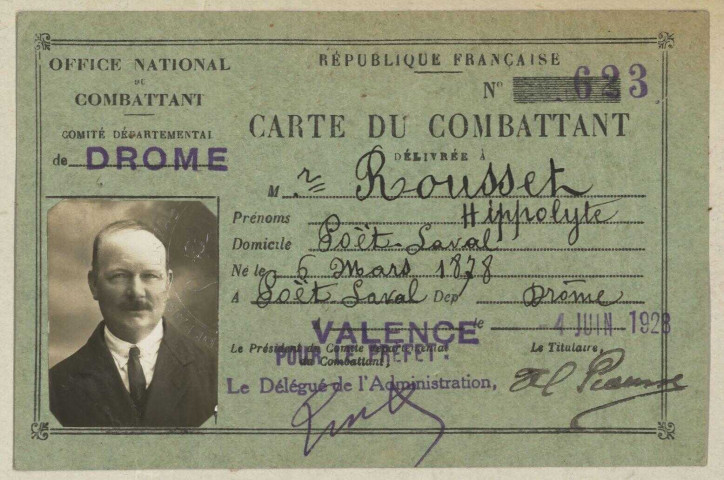 OFFICE NATIONAL
DU
COMBATTANT
COMITÉ DÉPARTEMENTAL
de DROME
RÉPUBLIQUE FRANÇAISE
Nº 623
CARTE DU COMBATTANT
DÉLIVRÉE À
M r Rousset
Prénoms Hippolyte
Domicile Poët-Laval
Né le 6 Mars 1878
A Poët Laval Dep Drôme
VALENCE le -4 JUIN 1928
Le Président du Comité départemental
du Combattant,
POUR LE PREFET:
Le Titulaire,
Le Délégué de l'Administration,